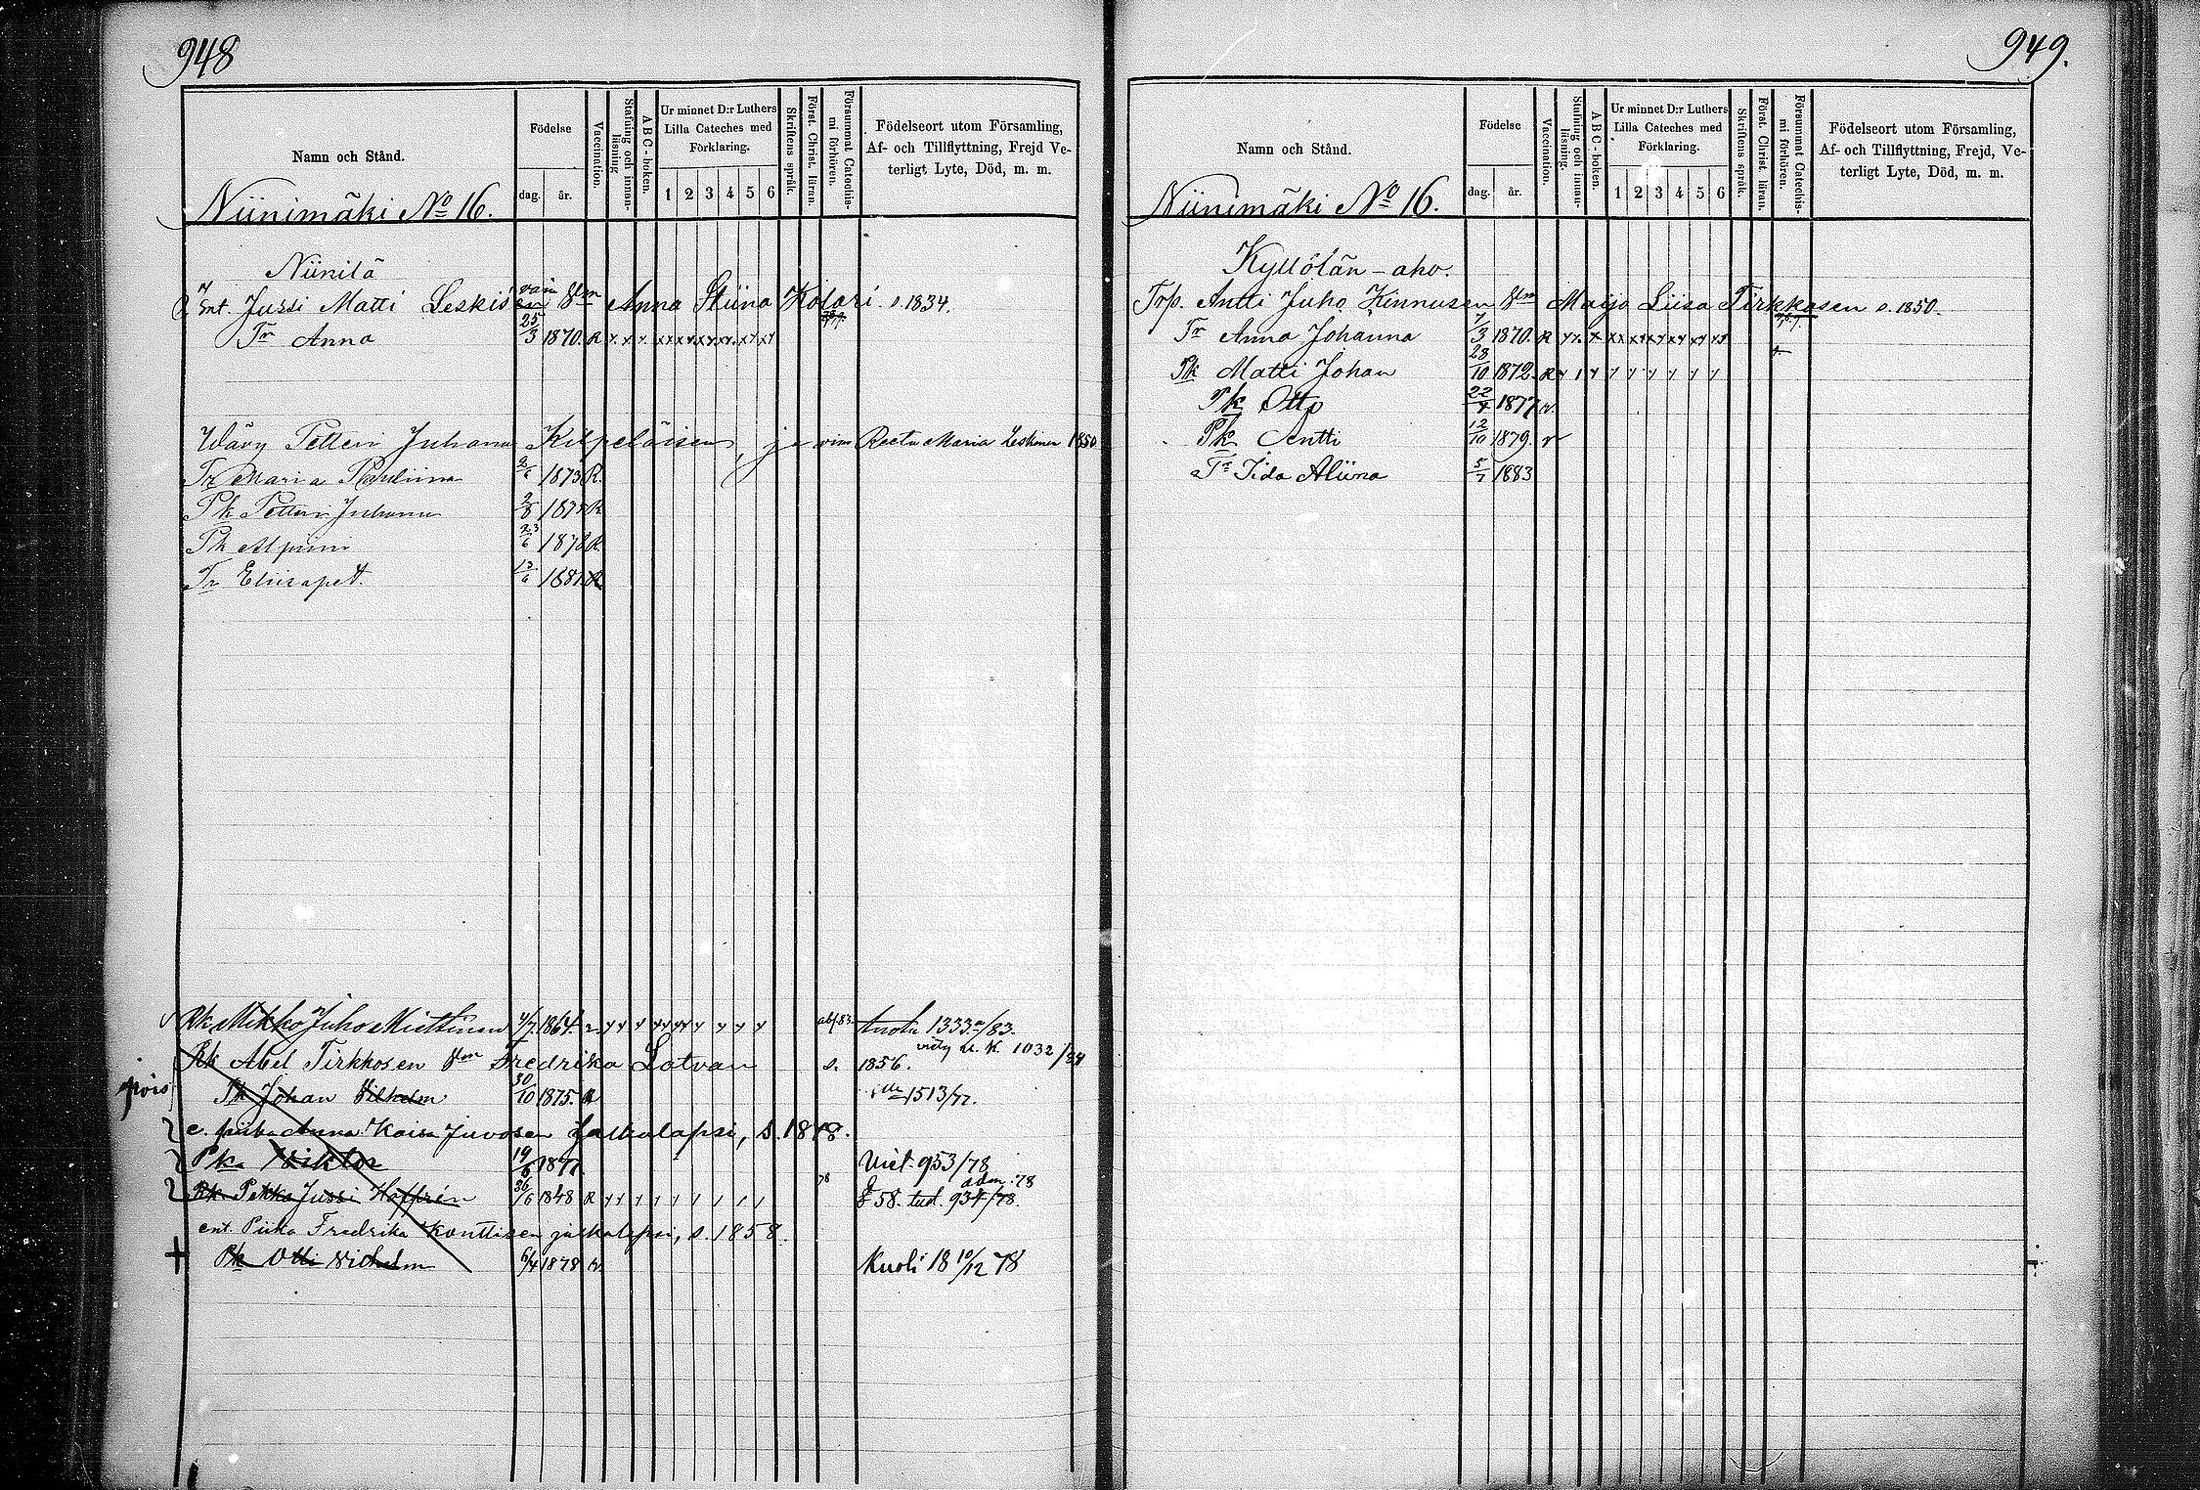 948
Namn och Stånd.
Födelse
dag.
år.
Vaccination.
Stafning och innan-läsning
ABC-boken.
Ur minnet D:r Luthers
Lilla Cateches med
Förklaring.
1 2 3 4 5 6
Skriftens språk.
Först. Christ. läran.
Försummat Catechis-mi förhören.
Födelseort utom Församling,
Af- och Tillflyttning, Frejd Ve-
terligt Lyte, Död, m. m.
Niinimäki No 16.
Niinilä
Ent. Jussi Matti Leskisen Vm Anna Stiina Kolari s. 1834.
Tr Anna 25/3 1870. R
Wävy Petteri Juhana Kilpeläisen, ja vim Reeta Maria Leskinen 1850
Tr Maria 1873 R.
Pk Petteri Juhana R
Pk Alpiini 23/6 R
Tr Eliisapet. 1881. R
Rk Mikko Juho Miettinen 4/7 1864.
abs 83.
tuotu 1333/83.
1032/84
Rk Abel Tirkkosen Vm Fredrika Latvan s. 1856.
pois
Pk Johan Vilhelm 30/10 1875. R 1513/77.
e. piika Anna Kaisa Juvosen jalkalapsi, s. 18
Pk. Viktor 19 1877. Viet. 953/78
Rk Pekka Jussi Hoffrén 26/6 1848 R
78
adm. 78
§ 58. tuol. 934/78.
ent. Piika Fredrika Konttisen jalkalapsi, s. 1858.
+ Pk Otti Vilhelm 6/4 1878 Kuoli 18 10/12 78
949.
Namn och Stånd.
Födelse
dag.
år.
Vaccination.
Stafning och innan-läsning.
ABC-boken.
Ur minnet D:r Luthers
Lilla Cateches med
Förklaring.
1 2 3 4 5 6
Skriftens språk.
Först. Christ. läran.
Försummat Catechis-mi förhören.
Födelseort utom Församling,
Af- och Tillflyttning, Frejd, Ve-
terligt Lyte, Död, m. m.
Niinimäki No 16.
Kyllölän-aho.
Torp. Antti Juho Kinnusen Vm Maija Liisa Tirkkosen s. 1850.
Tr Anna Johanna 7/3 1870. R
Pk Matti Johan 28/10 1872. R
Pk Otto 22/4 1877
Pk Antti 12/10 1879. r
Tr Iida Aliina 5/7 1883